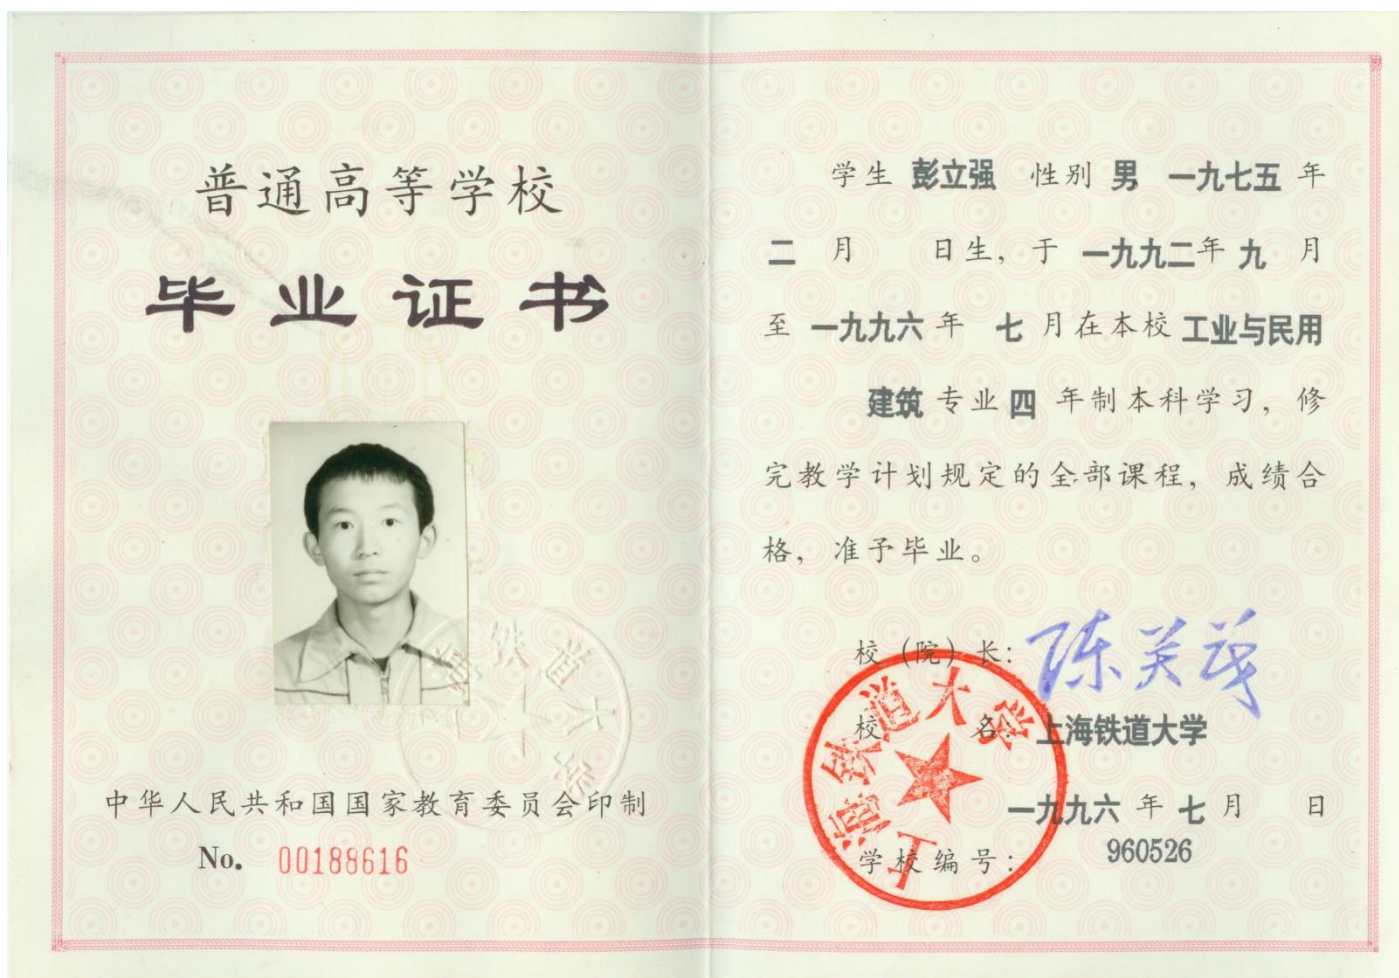 普通高等学校
毕业证书
中华人民共和国国家教育委员会印制
No. 00188616
铁道大学
学生 彭立强 性别 男 一九七五 年
二 月 日生, 于 一九九二 年 九 月
至 一九九六 年 七 月在本校 工业与民用
建筑 专业 四 年制本科学习, 修
完教学计划规定的全部课程, 成绩合
格, 准予毕业。
校(院)长: 陈关茂
校 名: 上海铁道大学
一九九六 年 七 月 日
学校编号: 960526
上海铁道大学